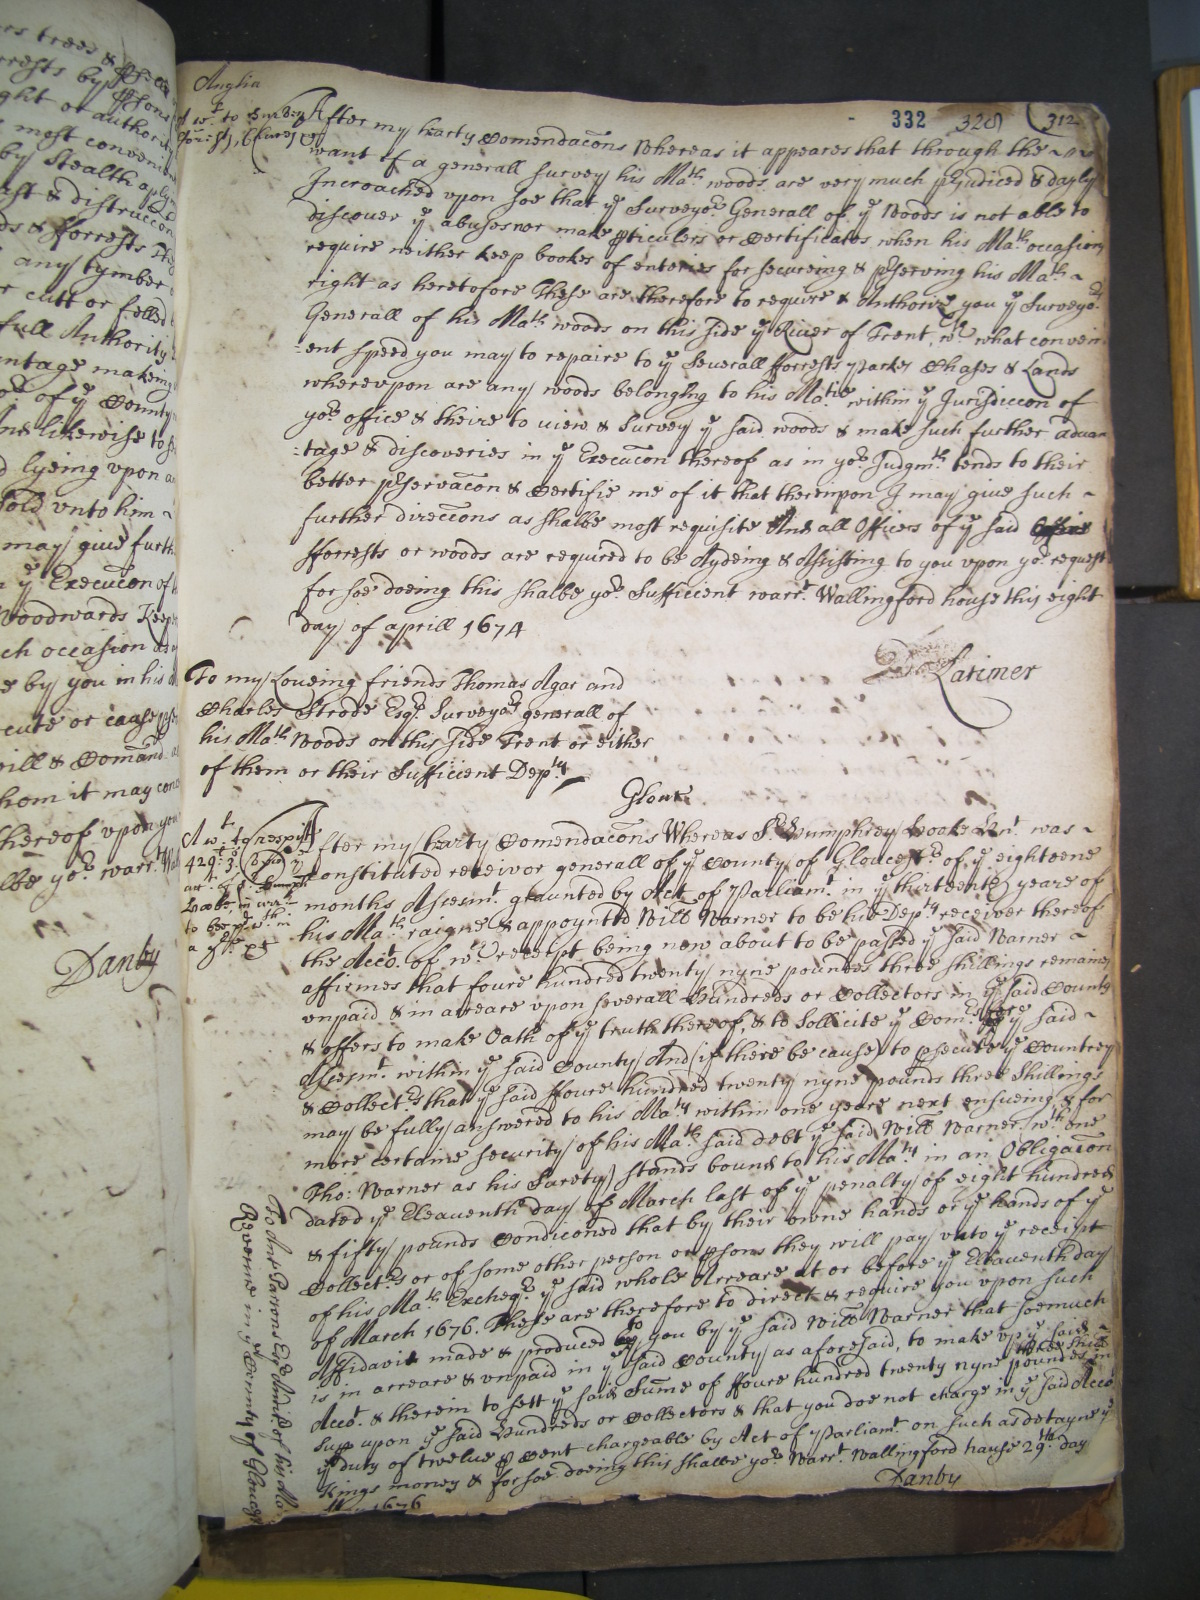 Anglia
332 328 312
After my hearty Comendacons Whereas it appeares that through the
want of a generall Survey his Matⁱᵉˢ woods are very much pjudiced & dayly
Incroached vpon soe that yᵉ Surveyoʳ Generall of yᵉ Woods is not able to
discover yᵉ abuses nor make pticulers or Certificates when his Matⁱᵉˢ occasions
require neither keep bookes of enteries for secureing & pserving his Matⁱᵉˢ
right as heretofore These are therefore to require & Authorize you yᵉ Surveyoʳ
Generall of his Matⁱᵉˢ woods on this side yᵉ River of Trent, wᵗʰ what conveni
ent speed you may to repaire to yᵉ Severall fforrests Parkes Chases & Lands
wherevpon are any woods belonging to his Matⁱᵉ within yᵉ Jurisdiccon of
yoʳ office & theire to view & Survey yᵉ said woods & make such further advan
tage & discoveries in yᵉ Execucon thereof as in yoʳ Judgmᵗ tends to their
better pservacon & Certifie me of it that therevpon I may give such
further direccons as shalbe most requisite And all Officers of yᵉ said
fforrests or woods are required to be Aydeing & Assisting to you vpon yoʳ request
for soe doeing this shalbe yoʳ Sufficient warrᵗ. Wallingford house this eight
day of aprill 1674
Latimer
To my Loveing friends Thomas Agar and
Charles Strode Esqʳˢ Surveyoʳˢ generall of
his Matⁱᵉˢ Woods on this side Trent or either
of them or their Sufficient Depᵗʸ
Glouc
After my hearty Comendacons Whereas Sʳ Humphrey Hooke Knᵗ. was
Constituted receivor generall of yᵉ County of Gloucestʳ of yᵉ eighteene
months Assesmᵗ. graunted by Act of Parliamᵗ. in yᵉ thirteenth yeare of
his Matⁱᵉˢ raigne & appoynted Will Warner to be his Depᵗʸ receiver thereof
the Accoᵗ. of wᶜʰ receipt being now about to be passed yᵉ said Warner
affirmes that foure hundred twenty nyne poundes three shillings remaines
vnpaid & in arreare vpon severall Hundreds or Collectors in yᵉ said County
& offers to make Oath of yᵉ truth thereof, & to Sollicite yᵉ Comʳˢ for yᵉ said
Assesmᵗ. within yᵉ said County And (if there be cause) to psecute yᵉ Countrey
& Collectʳˢ that yᵉ said ffoure hundred twenty nyne pounds three Shillings
may be fully answered to his Maᵗʸ within one yeare next ensueing & for
more certaine security of his Matⁱᵉˢ said debt yᵉ said Will Warner wᵗʰ one
Tho: Warner as his Surety stands bound to his Maᵗʸ in an Obligacon
dated yᵉ Eleaventh day of March last of yᵉ penalty of eight hundred
& fifty pounds Condiconed that by their owne hands or yᵉ hands of yᵉ
Collectʳˢ or of some other person or psons they will pay vnto yᵉ receipt
of his Matⁱᵉˢ Excheqʳ yᵉ said whole Arreare at or before yᵉ Eleaventh day
of March 1676. These are therefore to direct & require you vpon such
Affidavit made & produced to you by yᵉ said Will Warner that soemuch
is in arreare & vnpaid in yᵉ said County as aforesaid, to make vp yᵉ said
Accoᵗ. & therein to sett yᵉ said Sume of ffoure hundred twenty nyne poundes three shill in
Supr vpon yᵉ said Hundreds or Collectors & that you doe not charge in yᵉ said Acco
yᵉ duty of twelve p Cent chargeable by Act of Parliamᵗ. on such as detayne yᵉ
Kings money & for soe doeing this shalbe yoʳ Warrᵗ. Wallingford house 29ᵗʰ day
1676
Danby
To Anᵗ Parsons Esqʳ Auditʳ of his Maᵗˢ
Revenue in yᵉ County of Gloucestʳ
Danby